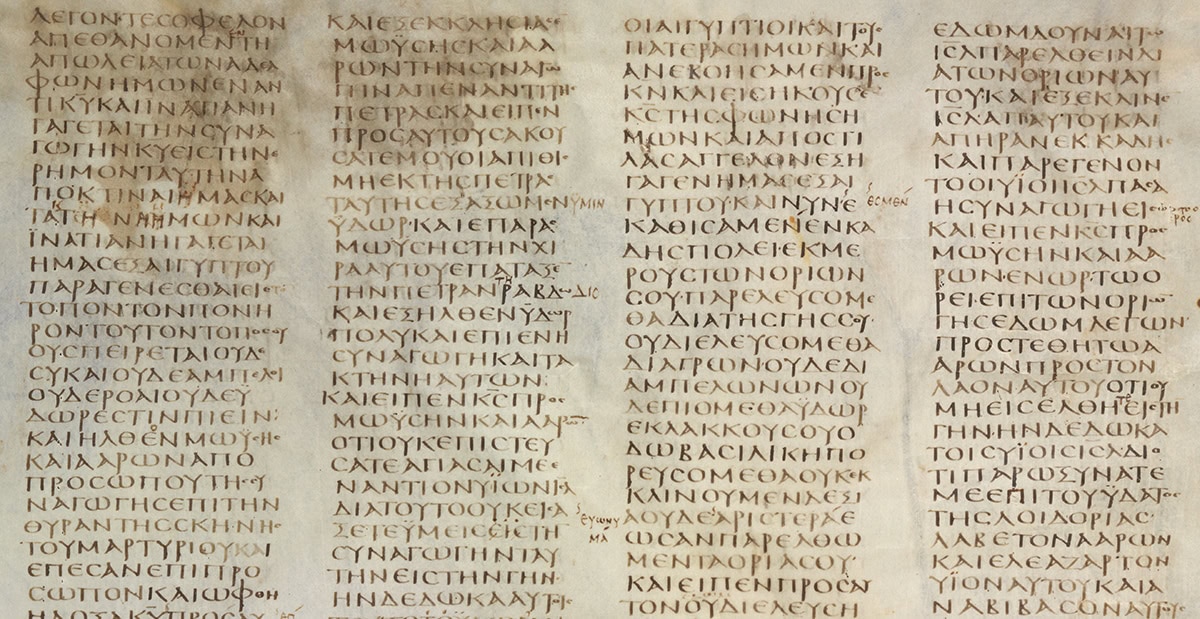 ΛΕΓΟΝΤΕϹΟΦΕΛΟΝ
ΑΠΕΘΑΝΟΜΕΝΤΗ
ΑΠΩΛΕΙΑΤΩΝΑΔΕΛ
ΦΩΝΗΜΩΝΕΝΑΝ
ΤΙΚ̅Υ̅ΚΑΙΙΝΑΤΙΑΝΗ
ΓΑΓΕΤΑΙΤΗΝϹΥΝΑ
ΓΩΓΗΝΚΥΕΙϹΤΗΝΕ
ΡΗΜΟΝΤΑΥΤΗΝΑ
ΠΟΚΤΙΝΑΙΗΜΑϹΚΑΙ
ΗΜΩΝΚΑΙ
ΪΝΑΤΙΑΝΗΓΑΓΕΤΑΙ
ΗΜΑϹΕΞΑΙΓΥΠΤΟΥ
ΠΑΡΑΓΕΝΕϹΘΑΙΕΙϹ
ΤΟΠΟΝΤΟΝΠΟΝΗ
ΡΟΝΤΟΥΤΟΝΤΟΠΟϹΟΥ
ΟΥϹΠΕΙΡΕΤΑΙΟΥΔΕ
ϹΥΚΑΙΟΥΔΕΑΜΠΕΛΟΙ
ΟΥΔΕΡΟΑΙΟΥΔΕΫ
ΔΩΡΕϹΤΙΝΠΙΕΙΝ:
ΚΑΙΗΛΘΕΝΜΩΫϹΗϹ
ΚΑΙΑΑΡΩΝΑΠΟ
ΠΡΟϹΩΠΟΥΤΗϹϹΥ
ΝΑΓΩΓΗϹΕΠΙΤΗΝ
ΘΥΡΑΝΤΗϹϹΚΗΝΗϹ
ΤΟΥΜΑΡΤΥΡΙΟΥΚΑΙ
ΕΠΕϹΑΝΕΠΙΠΡΟ
ϹΩΠΟΝΚΑΙΩΦΘΗ
ΗΔΟΞΑΚ̅Υ̅ΠΡΟϹΑΥ
ΚΑΙΕΞΕΚΚΛΗϹΙΑϹΕ
ΜΩΫϹΗϹΚΑΙΑΑ
ΡΩΝΤΗΝϹΥΝΑΓΩ
ΓΗΝΑΠΕΝΑΝΤΙΤΗϹ
ΠΕΤΡΑϹΚΑΙΕΙΠΕΝ
ΠΡΟϹΑΥΤΟΥϹΑΚΟΥ
ϹΑΤΕΜΟΥΟΙΑΠΙΘΙϹ
ΜΗΕΚΤΗϹΠΕΤΡΑϹ
ΤΑΥΤΗϹΕΞΑΞΩΜΕΝΫΜΙΝ
ΫΔΩΡ·ΚΑΙΕΠΑΡΑϹ
ΜΩΫϹΗϹΤΗΝΧΙ
ΡΑΑΥΤΟΥΕΠΑΤΑΞΕ
ΤΗΝΠΕΤΡΑΝΤΗΡΑΒΔΩΔΙϹ
ΚΑΙΕΞΗΛΘΕΝΫΔΩΡ
ΠΟΛΥΚΑΙΕΠΙΕΝΗ
ϹΥΝΑΓΩΓΗΚΑΙΤΑ
ΚΤΗΝΗΑΥΤΩΝ:
ΚΑΙΕΙΠΕΝΚ̅Ϲ̅ΠΡΟϹ
ΜΩΫϹΗΝΚΑΙΑΑΡΩ
ΟΤΙΟΥΚΕΠΙϹΤΕΥ
ϹΑΤΕΑΓΙΑϹΑΙΜΕΕ
ΝΑΝΤΙΟΝΫΪΩΝΙϹΛ
ΔΙΑΤΟΥΤΟΟΥΚΕΙϹΑ
ΞΕΤΕΫΜΕΙϹΤΗ
ϹΥΝΑΓΩΓΗΝΤΑΥ
ΤΗΝΕΙϹΤΗΝΓΗΝ·
ΗΝΔΕΔΩΚΑΑΥΤΟΙϹ
ΟΙΑΙΓΥΠΤΙΟΙΚΑΙΤΟΥϹ
ΠΑΤΕΡΑϹΗΜΩΝΚΑΙ
ΑΝΕΒΟΗϹΑΜΕΝΠΡΟϹ
Κ̅Ν̅ΚΑΙΕΙϹΗΚΟΥϹΕ
Κ̅Ϲ̅ΤΗϹΦΩΝΗϹΗ
ΜΩΝΚΑΙΑΠΟϹΤΙ
ΛΑϹΑΓΓΕΛΟΝΕΞΗ
ΓΑΓΕΝΗΜΑϹΕΞΑΙ
ΓΥΠΤΟΥΚΑΙΝΥΝΕ ΕϹΜΕΝ
ΚΑΘΙϹΑΜΕΝΕΝΚΑ
ΔΗϹΠΟΛΕΙΕΚΜΕ
ΡΟΥϹΤΩΝΟΡΙΩΝ
ϹΟΥ·ΠΑΡΕΛΕΥϹΟΜΕ
ΘΑΔΙΑΤΗϹΓΗϹϹΟΥ·
ΟΥΔΙΕΛΕΥϹΟΜΕΘΑ
ΔΙΑΓΡΩΝΟΥΔΕΔΙ
ΑΜΠΕΛΩΝΩΝΟΥ
ΔΕΠΙΟΜΕΘΑΫΔΩΡ
ΕΚΛΑΚΚΟΥϹΟΥΟ
ΔΩΒΑϹΙΛΙΚΗΠΟ
ΡΕΥϹΟΜΕΘΑΟΥΚΕΚ
ΚΛΙΝΟΥΜΕΝΔΕΞΙ
ΑΟΥΔΕΑΡΙϹΤΕΡΑΕ ΕΥΩΝΥΜΑ
ΩϹΑΝΠΑΡΕΛΘΩ
ΜΕΝΤΑΟΡΙΑϹΟΥ·
ΚΑΙΕΙΠΕΝΠΡΟϹΑΥ
ΤΟΝΟΥΔΙΕΛΕΥϹΗ
ΕΔΩΜΔΟΥΝΑΙΤΩ
Ι̅Ϲ̅Λ̅ΠΑΡΕΛΘΕΙΝΔΙ
ΑΤΩΝΟΡΙΩΝΑΥ
ΤΟΥ·ΚΑΙΕΞΕΚΛΙΝΕ
Ι̅Ϲ̅Λ̅ΑΠΑΥΤΟΥΚΑΙ
ΑΠΗΡΑΝΕΚΚΑΔΗϹ
ΚΑΙΠΑΡΕΓΕΝΟΝ
ΤΟΟΙΫΪΟΙΙϹΛΠΑϹΑ
ΗϹΥΝΑΓΩΓΗΕΙϹ
ΚΑΙΕΙΠΕΝΚ̅Ϲ̅ΠΡΟϹ
ΜΩΫϹΗΝΚΑΙΑΑ
ΡΩΝ·ΕΝΩΡ·ΤΩΟ
ΡΕΙΕΠΙΤΩΝΟΡΙΩ
ΓΗϹΕΔΩΜΛΕΓΩΝ·
ΠΡΟϹΤΕΘΗΤΩΑ
ΑΡΩΝΠΡΟϹΤΟΝ
ΛΑΟΝΑΥΤΟΥΟΤΙΟΥ
ΜΗΕΙϹΕΛΘΗΤΕΕΙϹΤΗ
ΓΗΝ·ΗΝΔΕΔΩΚΑ
ΤΟΙϹΥΪΟΙϹΙϹΛΔΙΟ
ΤΙΠΑΡΩΞΥΝΑΤΕ
ΜΕΕΠΙΤΟΥΫΔΑΤΟϹ
ΤΗϹΛΟΙΔΟΡΙΑϹ·
ΛΑΒΕΤΟΝΑΑΡΩΝ
ΚΑΙΕΛΕΑΖΑΡΤΟΝ
ΥΪΟΝΑΥΤΟΥΚΑΙΑ
ΝΑΒΙΒΑϹΟΝΑΥΤΟΥϹ